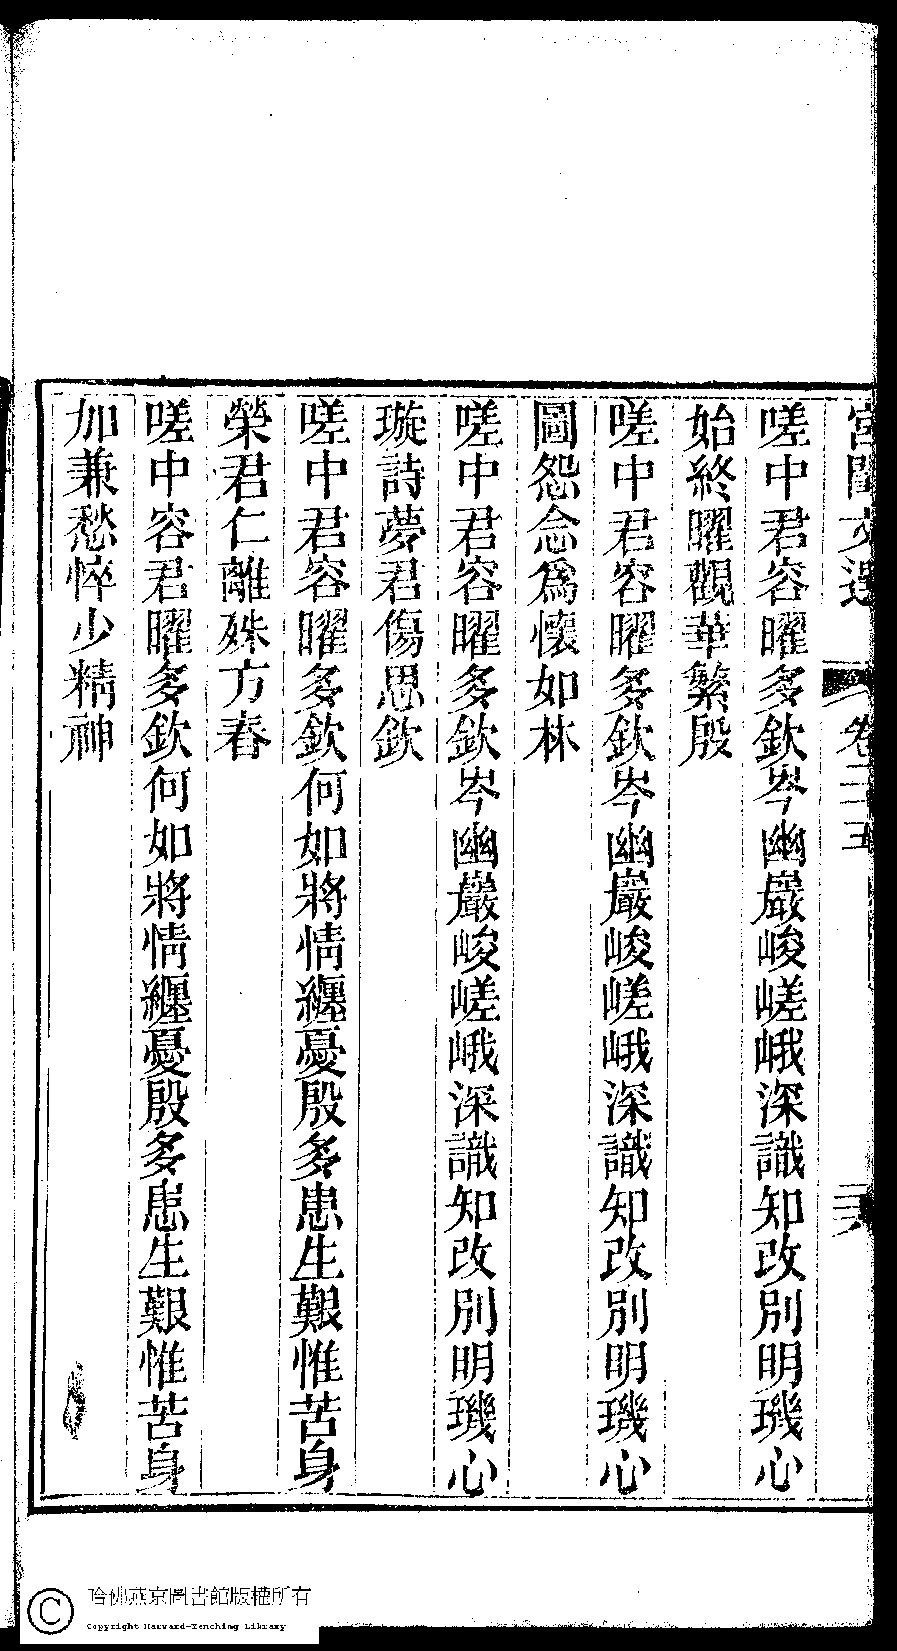 宮閨文選 卷二十五
嗟中君容曜多欽岑幽巖峻嵯峨深識知改別明璣心
始終曜觀華繁殷
嗟中君容曜多欽岑幽巖峻嵯峨深識知改別明璣心
圖怨念爲懷如林
嗟中君容曜多欽岑幽巖峻嵯峨深識知改別明璣心
璇詩夢君傷思欽
嗟中君容曜多欽何如將情纏憂殷多患生艱惟苦身
榮君仁離殊方春
嗟中容君曜多欽何如將情纏憂殷多患生艱惟苦身
加兼愁悴少精神
哈佛燕京圖書館版權所有
Copyright Harvard-Yenching Library